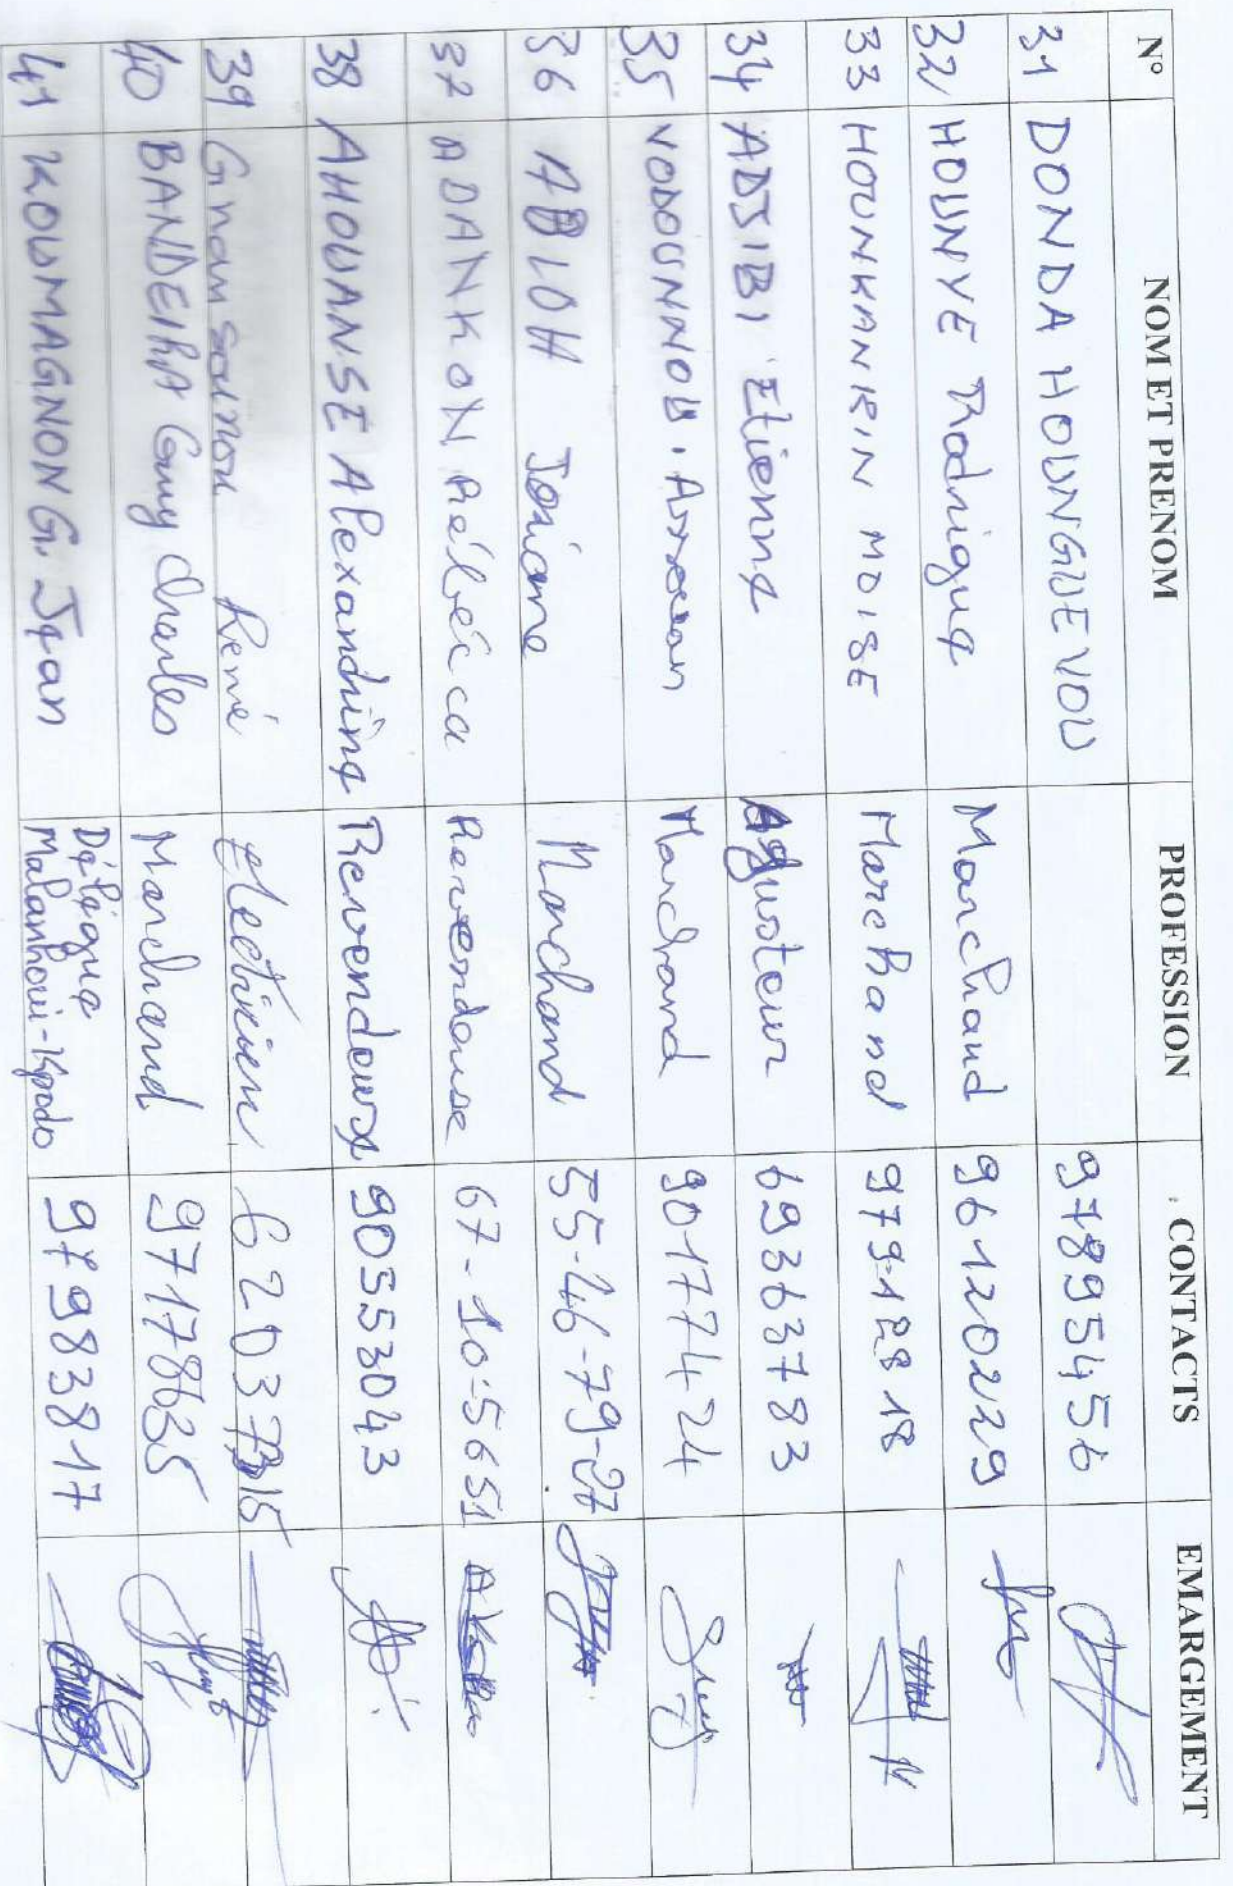 N° NOM ET PRENOM PROFESSION CONTACTS EMARGEMENT
31 DONDA HOUNGUEVOU 97895456
32 HOUNYE Rodrigue Marchand 96120229
33 HOUNKANRIN MOISE Marchand 97912818
34 ADJIBI Etienne Ajusteur 69363783
35 VODOUNNOU Marchand 90177424
36 ABLOH Josiane Marchand 55-46-79-27
37 ADANKON Rébécca Revendeuse 67-10-5651
38 AHOUANSE Alexandrine Revendeuse 90553043
39 Gnansounon René Electricien
40 BANDEIRA Guy Charles Marchand 97178635
41 KOUMAGNON G. Jean Délégué Malanhoui-Kpodo 97983817